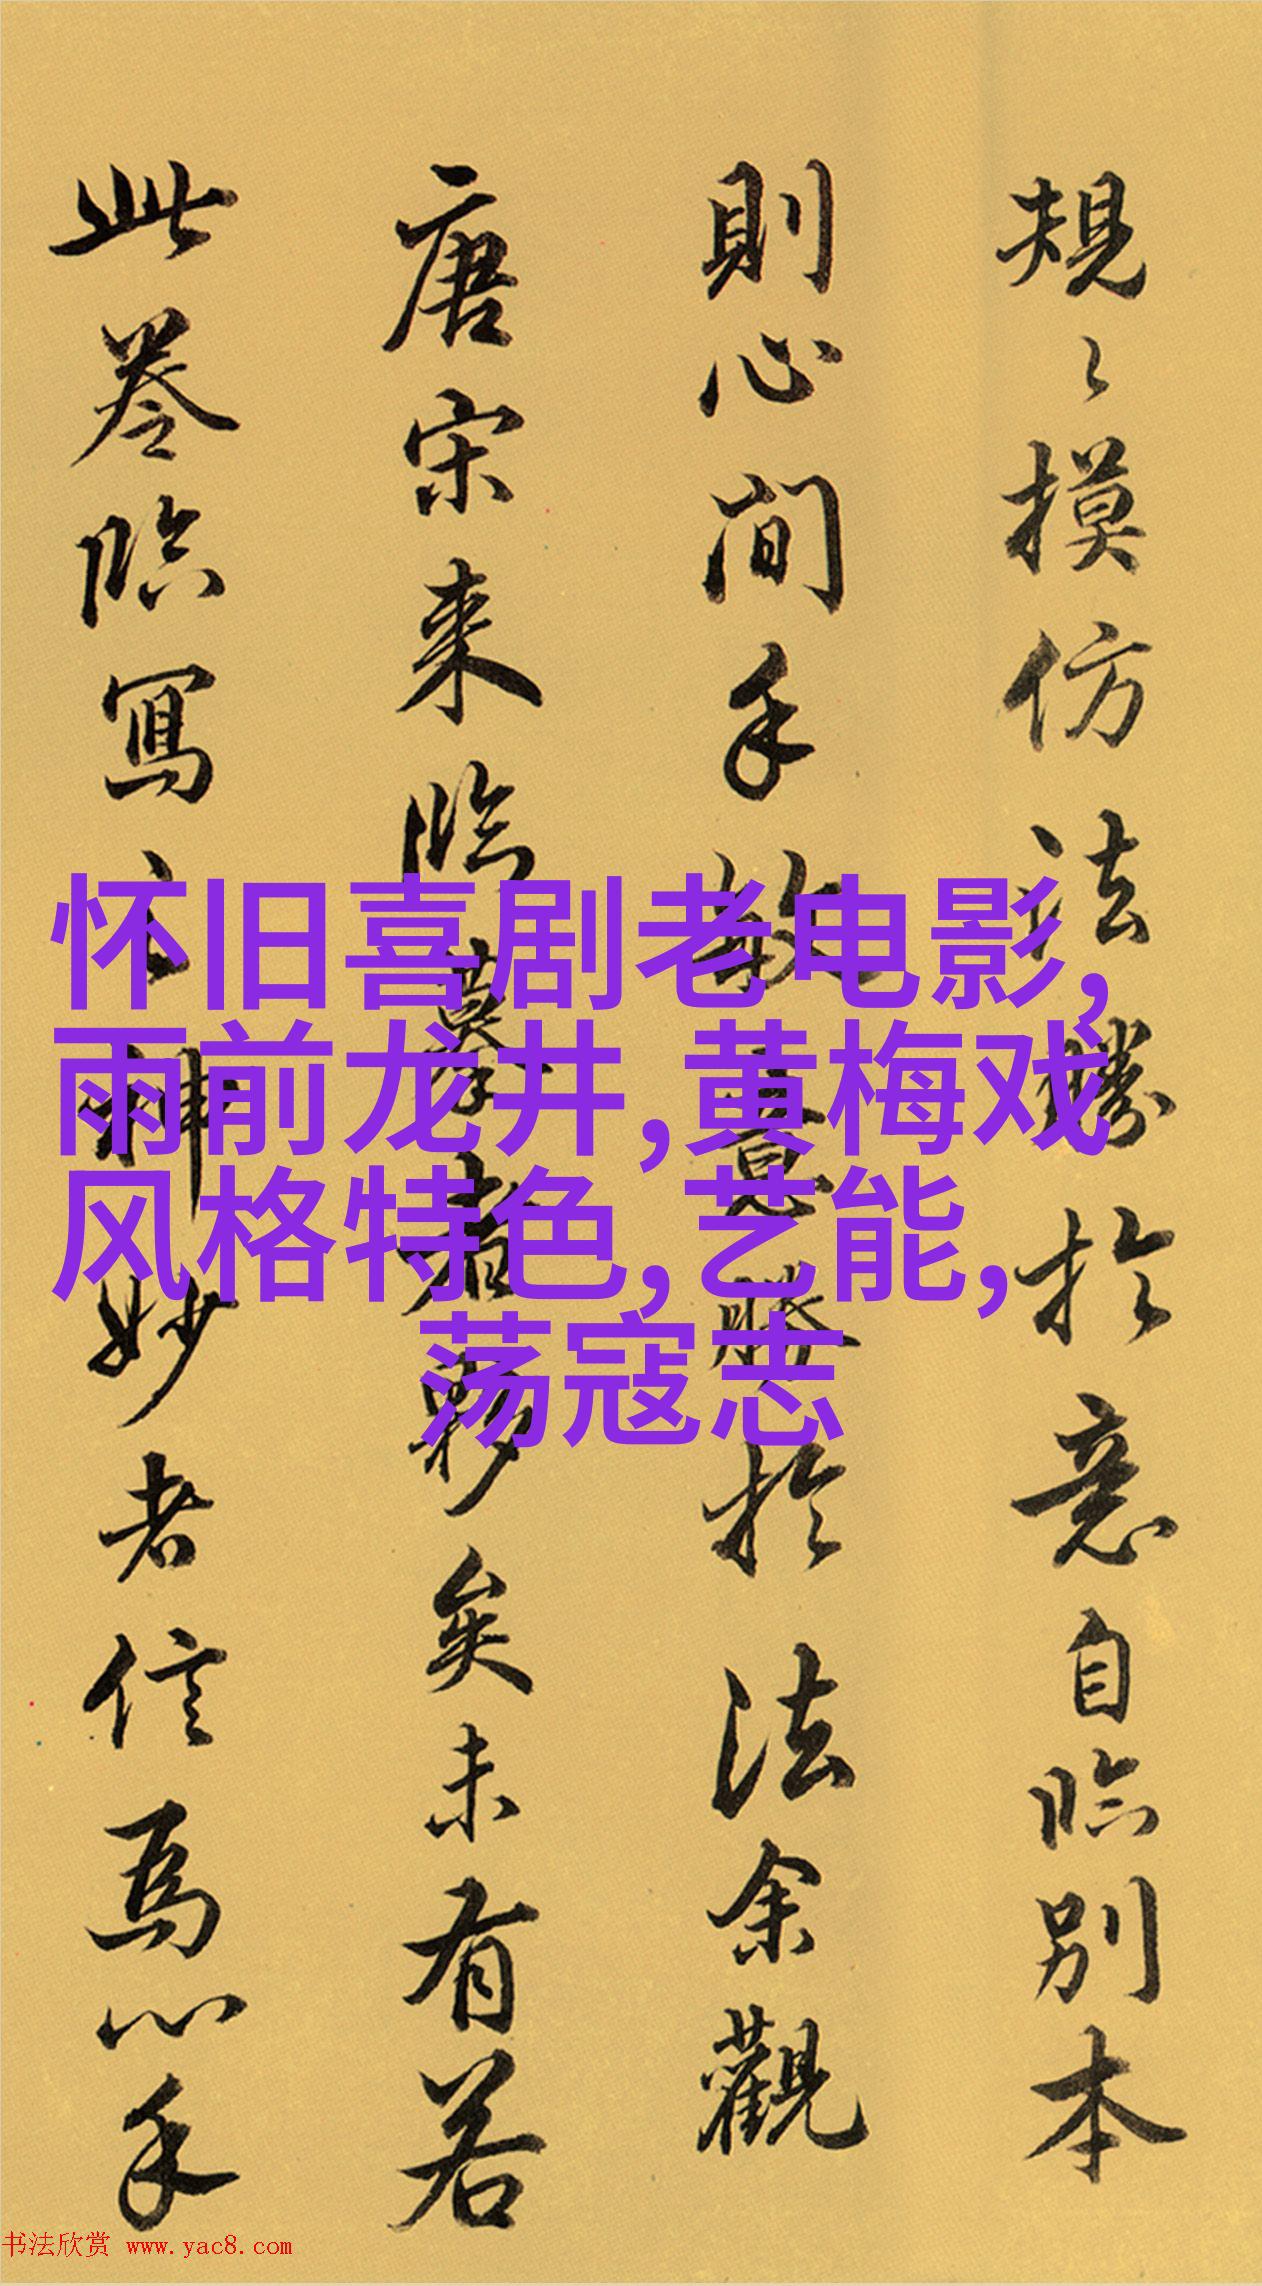 規〻摸仿法勝扵意自临别本
則心间手敵意勝扵法余觀
唐宋来临摹者夥矣未有若
此卷临寫之神妙者信焉心手
怀旧喜剧老电影,
雨前龙井,黄梅戏
风格特色,艺能,
荡寇志
书法欣赏 www.yac8.com